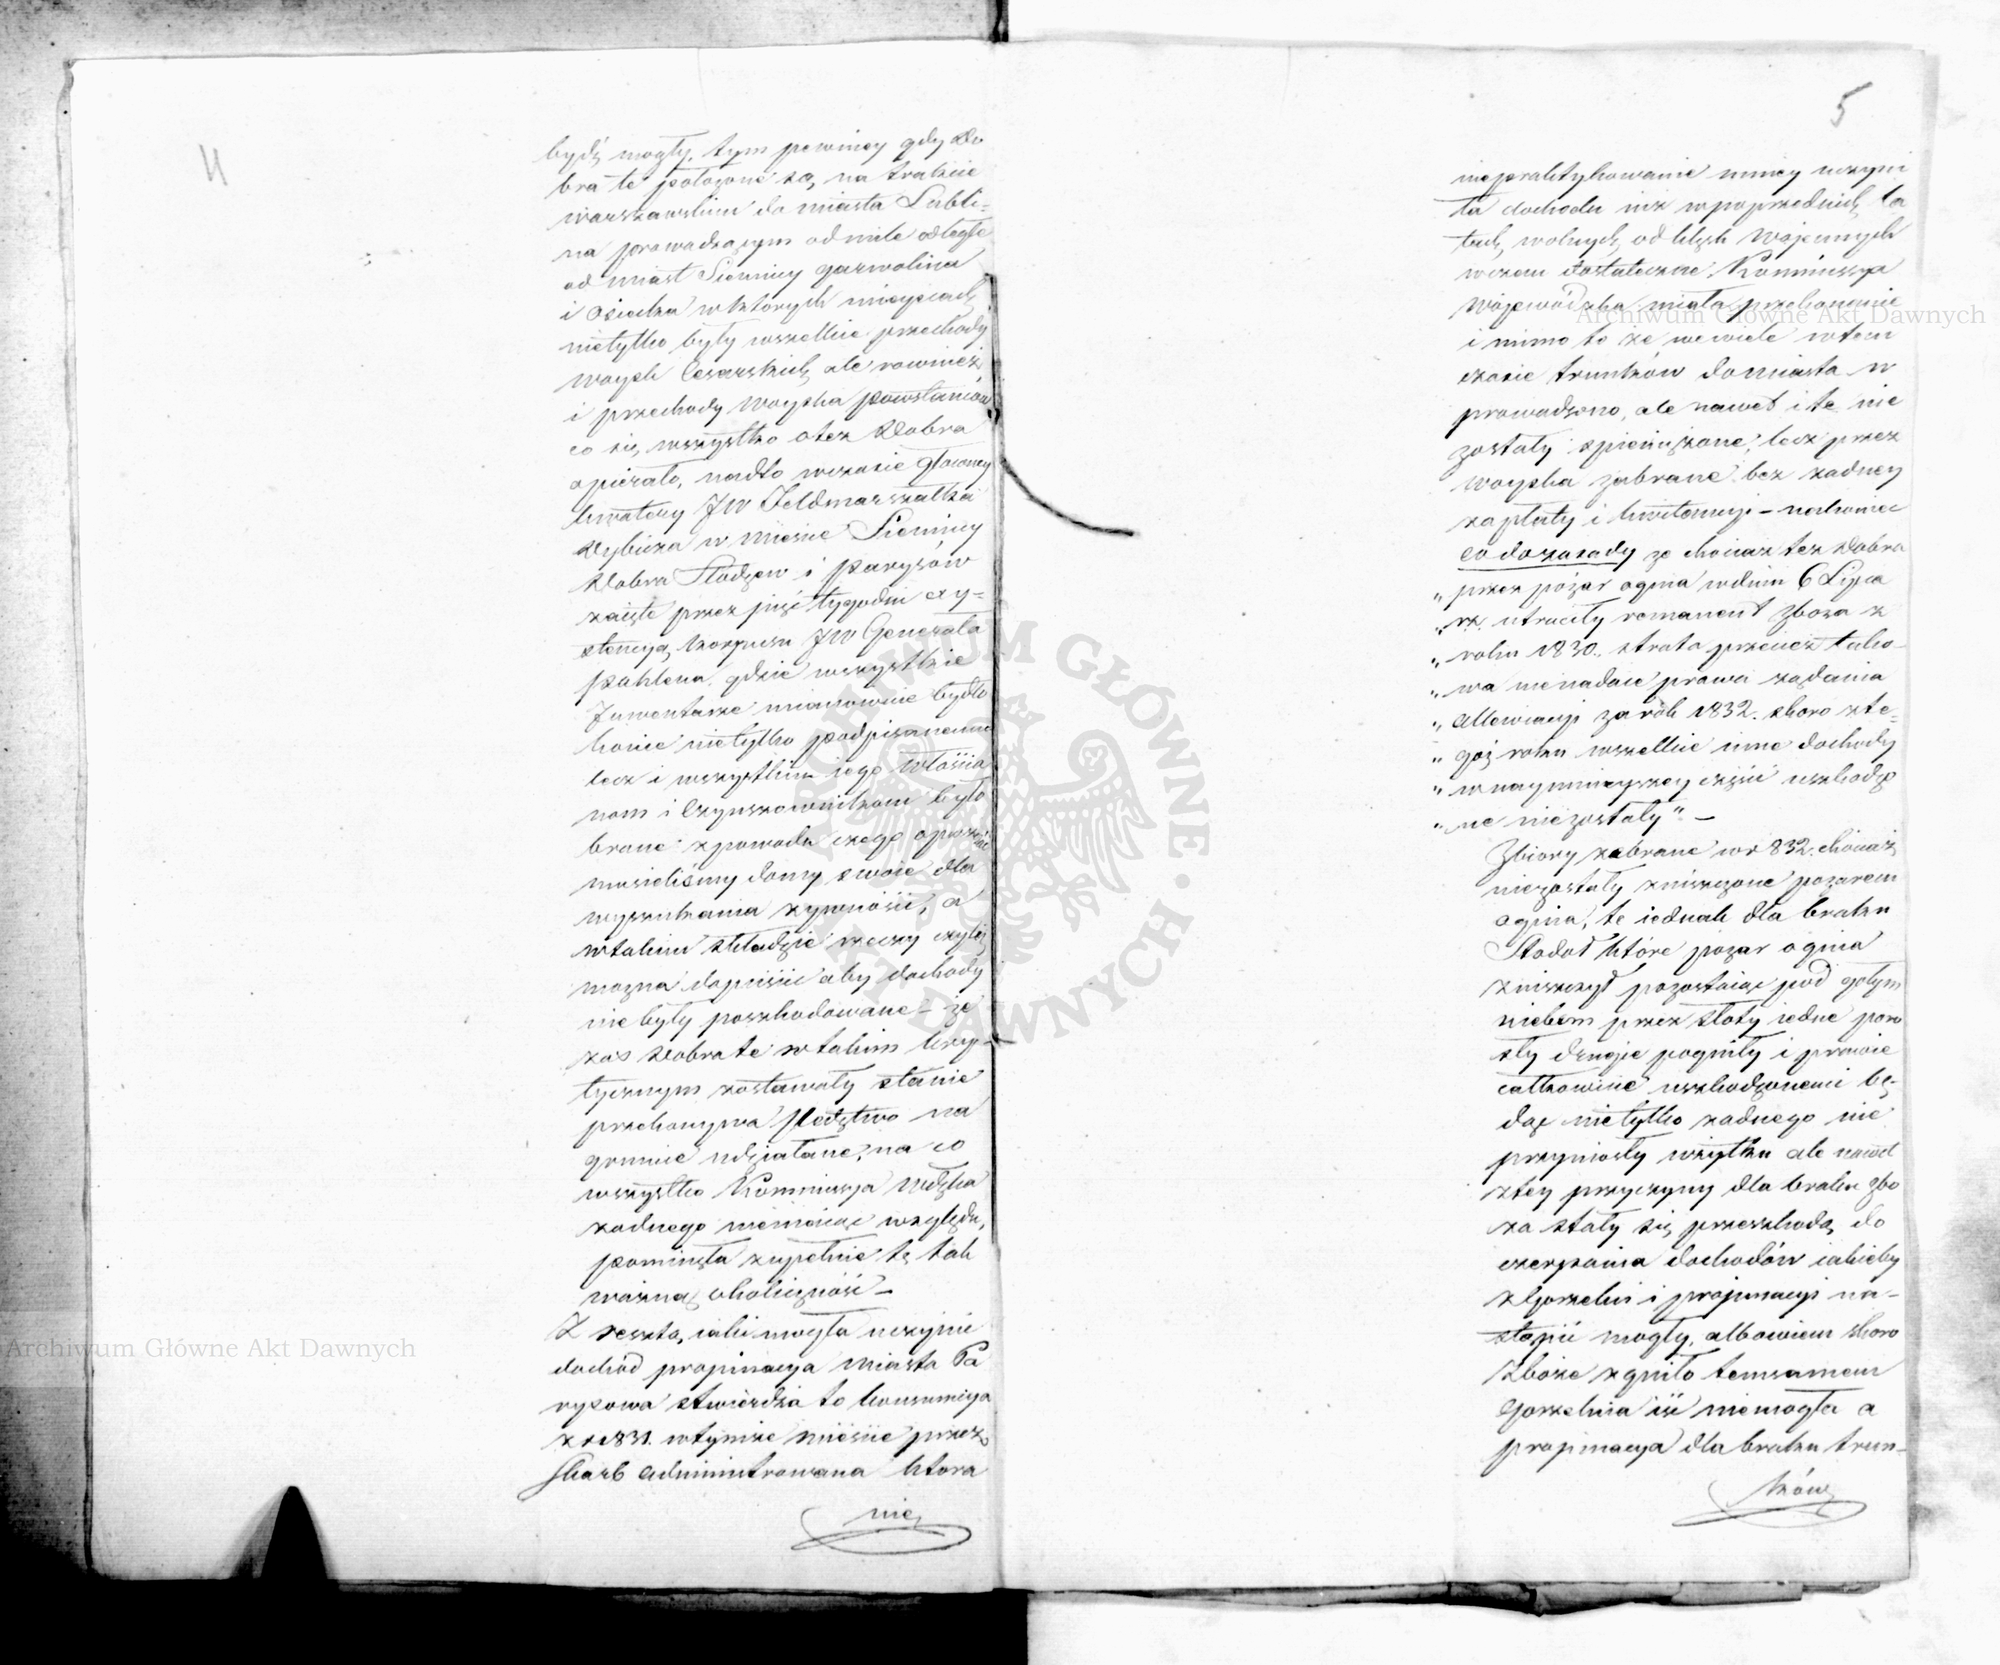 4
bydź mogły, tym pewniey gdy do
bra te położone są, na trakcie
warszawskim do miasta Lubli-
na prowadzącym od mile odległe
od miast Siennicy garwolina
i osiecka w których mieyscach
nietylko były wszelkie przechody
woysk Cesarskich ale rownież
i przechody woyska powstańców
co się wszystko otez Dobra
opierało, nadto wczasie głowney
kwatery JW Feldmarszałka
Dybicza w mieście Siennicy
Dobra Stodzew i Parysów
zaięte przez pięć tygodni exy-
stencyą korpusu JW Generała
Pahlena, gdzie wszystkie
Inwentarze mianowicie bydło
konie nietylko podpisanemu
lecz i wszystkim iego włościa
nom i Czynszownikom było
brane z powodu czego opuszczać
musieliśmy domy swoie dla
wyszukania żywności, a
wtakim składzie rzeczy czyliż
można dopuścić aby dochody
nie były poszkodowane – że
zaś Dobra te w takim kry-
tycznym zostawały stanie
przekonywa śledztwo na
gruncie udziałane, na co
wszystko Kommissya Wdzka
żadnego niemaiąc względu,
pominęła zupełnie tę tak
ważną okoliczność –
Z resztą, iaki mogła uczynić
dochód propinacya miasta Pa
rysowa stwierdza to konsumcya
z r 1831. wtymże mieście przez
Skarb administrowana ktora
nie
5
niepraktykowanie mniey uczyni
ła dochodu niż w poprzednich la
tach, wolnych od klęsk Woiennych
wczem dostateczne Kommissya
Wojewódzka miała przekonanie
i mimo to że niewiele wtem
czasie trunków do miasta w
prowadzono, ale nawet i te nie
zostały spieniężone, lecz przez
woyska zabrane bez żadney
zapłaty i kwitancyi – nakoniec
co do zasady że chociaż tez Dobra
„ przez pożar ognia wdniu 6 Lipca
„ rz. utraciły remanent zboża z
„ roku 1830. strata przecież tako-
„ wa nienadaie prawa żądania
„ allewiacyi za rók 1832. skoro zte-
„ goż roku wszelkie inne dochody
„ w naymnieyszey części uszkodzo
„ ne niezostały" –
Zbiory zebrane w r 832. chociaż
niezostały zniszczone pożarem
ognia, te iednak dla braku
Stodół które pożar ognia
zniszczył pozostaiąc pod gołym
niebem przez słoty iedne poro
sły drugie pogniły i prawie
całkowicie uszkodzonemi bę-
dąc nietylko żadnego nie
przyniosły użytku ale nawet
ztey przyczyny dla braku zbo
ża stały się przeszkodą do
czerpania dochodów iakieby
z Gorzelni i propinacyi na-
stąpić mogły, albowiem skoro
Zboże zgniło temsamem
Gorzelnia iść niemogła a
propinacya dla braku trun-
ków
Archiwum Główne Akt Dawnych
Archiwum Główne Akt Dawnych
ARCHIWUM GŁÓWNE AKT DAWNYCH